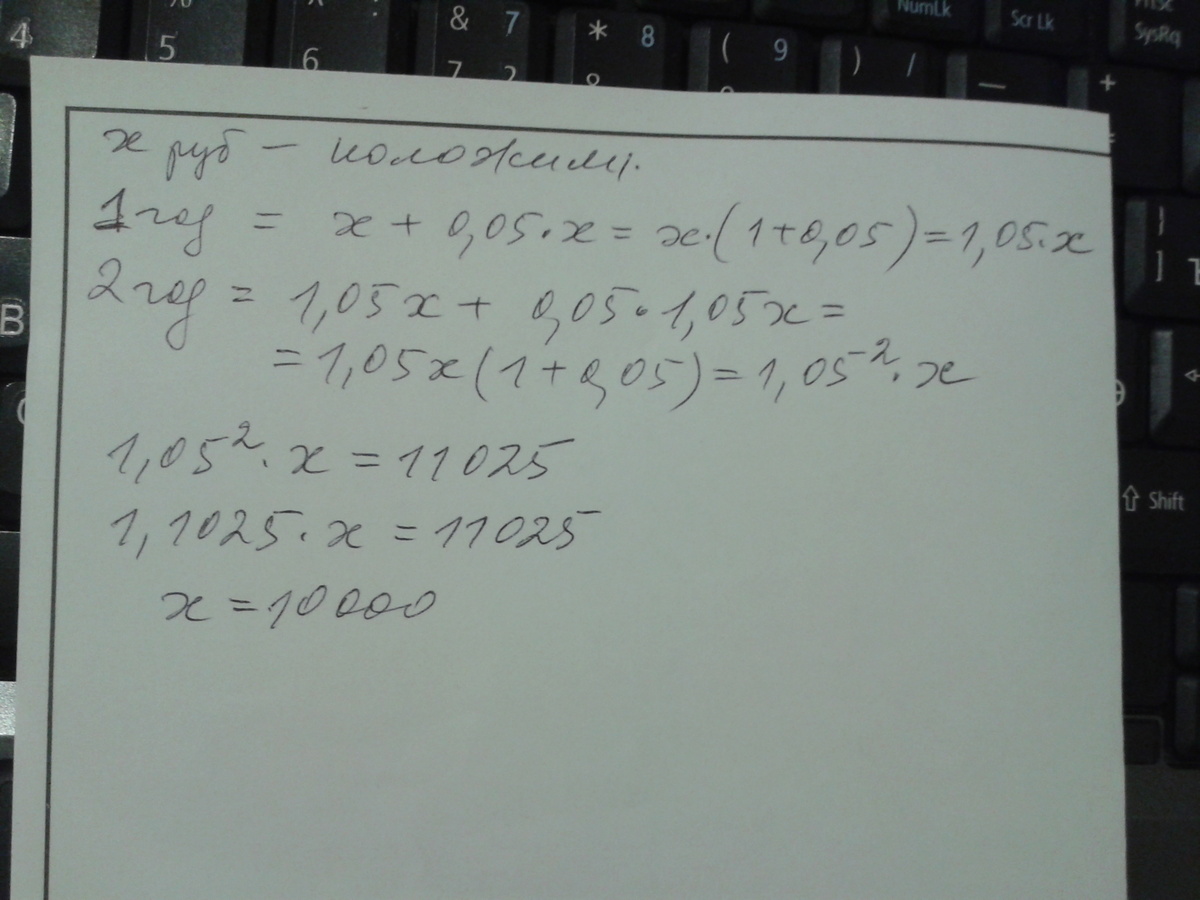 4 % 5 ^ : 6 & 7 7 2 * 8 8 ( 9 ) / — + NumLk Scr Lk PrtSc SysRq
x руб – положим.
1 год = x + 0,05·x = x·(1+0,05)=1,05·x
2 год = 1,05x + 0,05·1,05x =
=1,05x(1+0,05)=1,05²·x
1,05²·x = 11025
1,1025·x = 11025
x = 10000
B
} ]
Shift